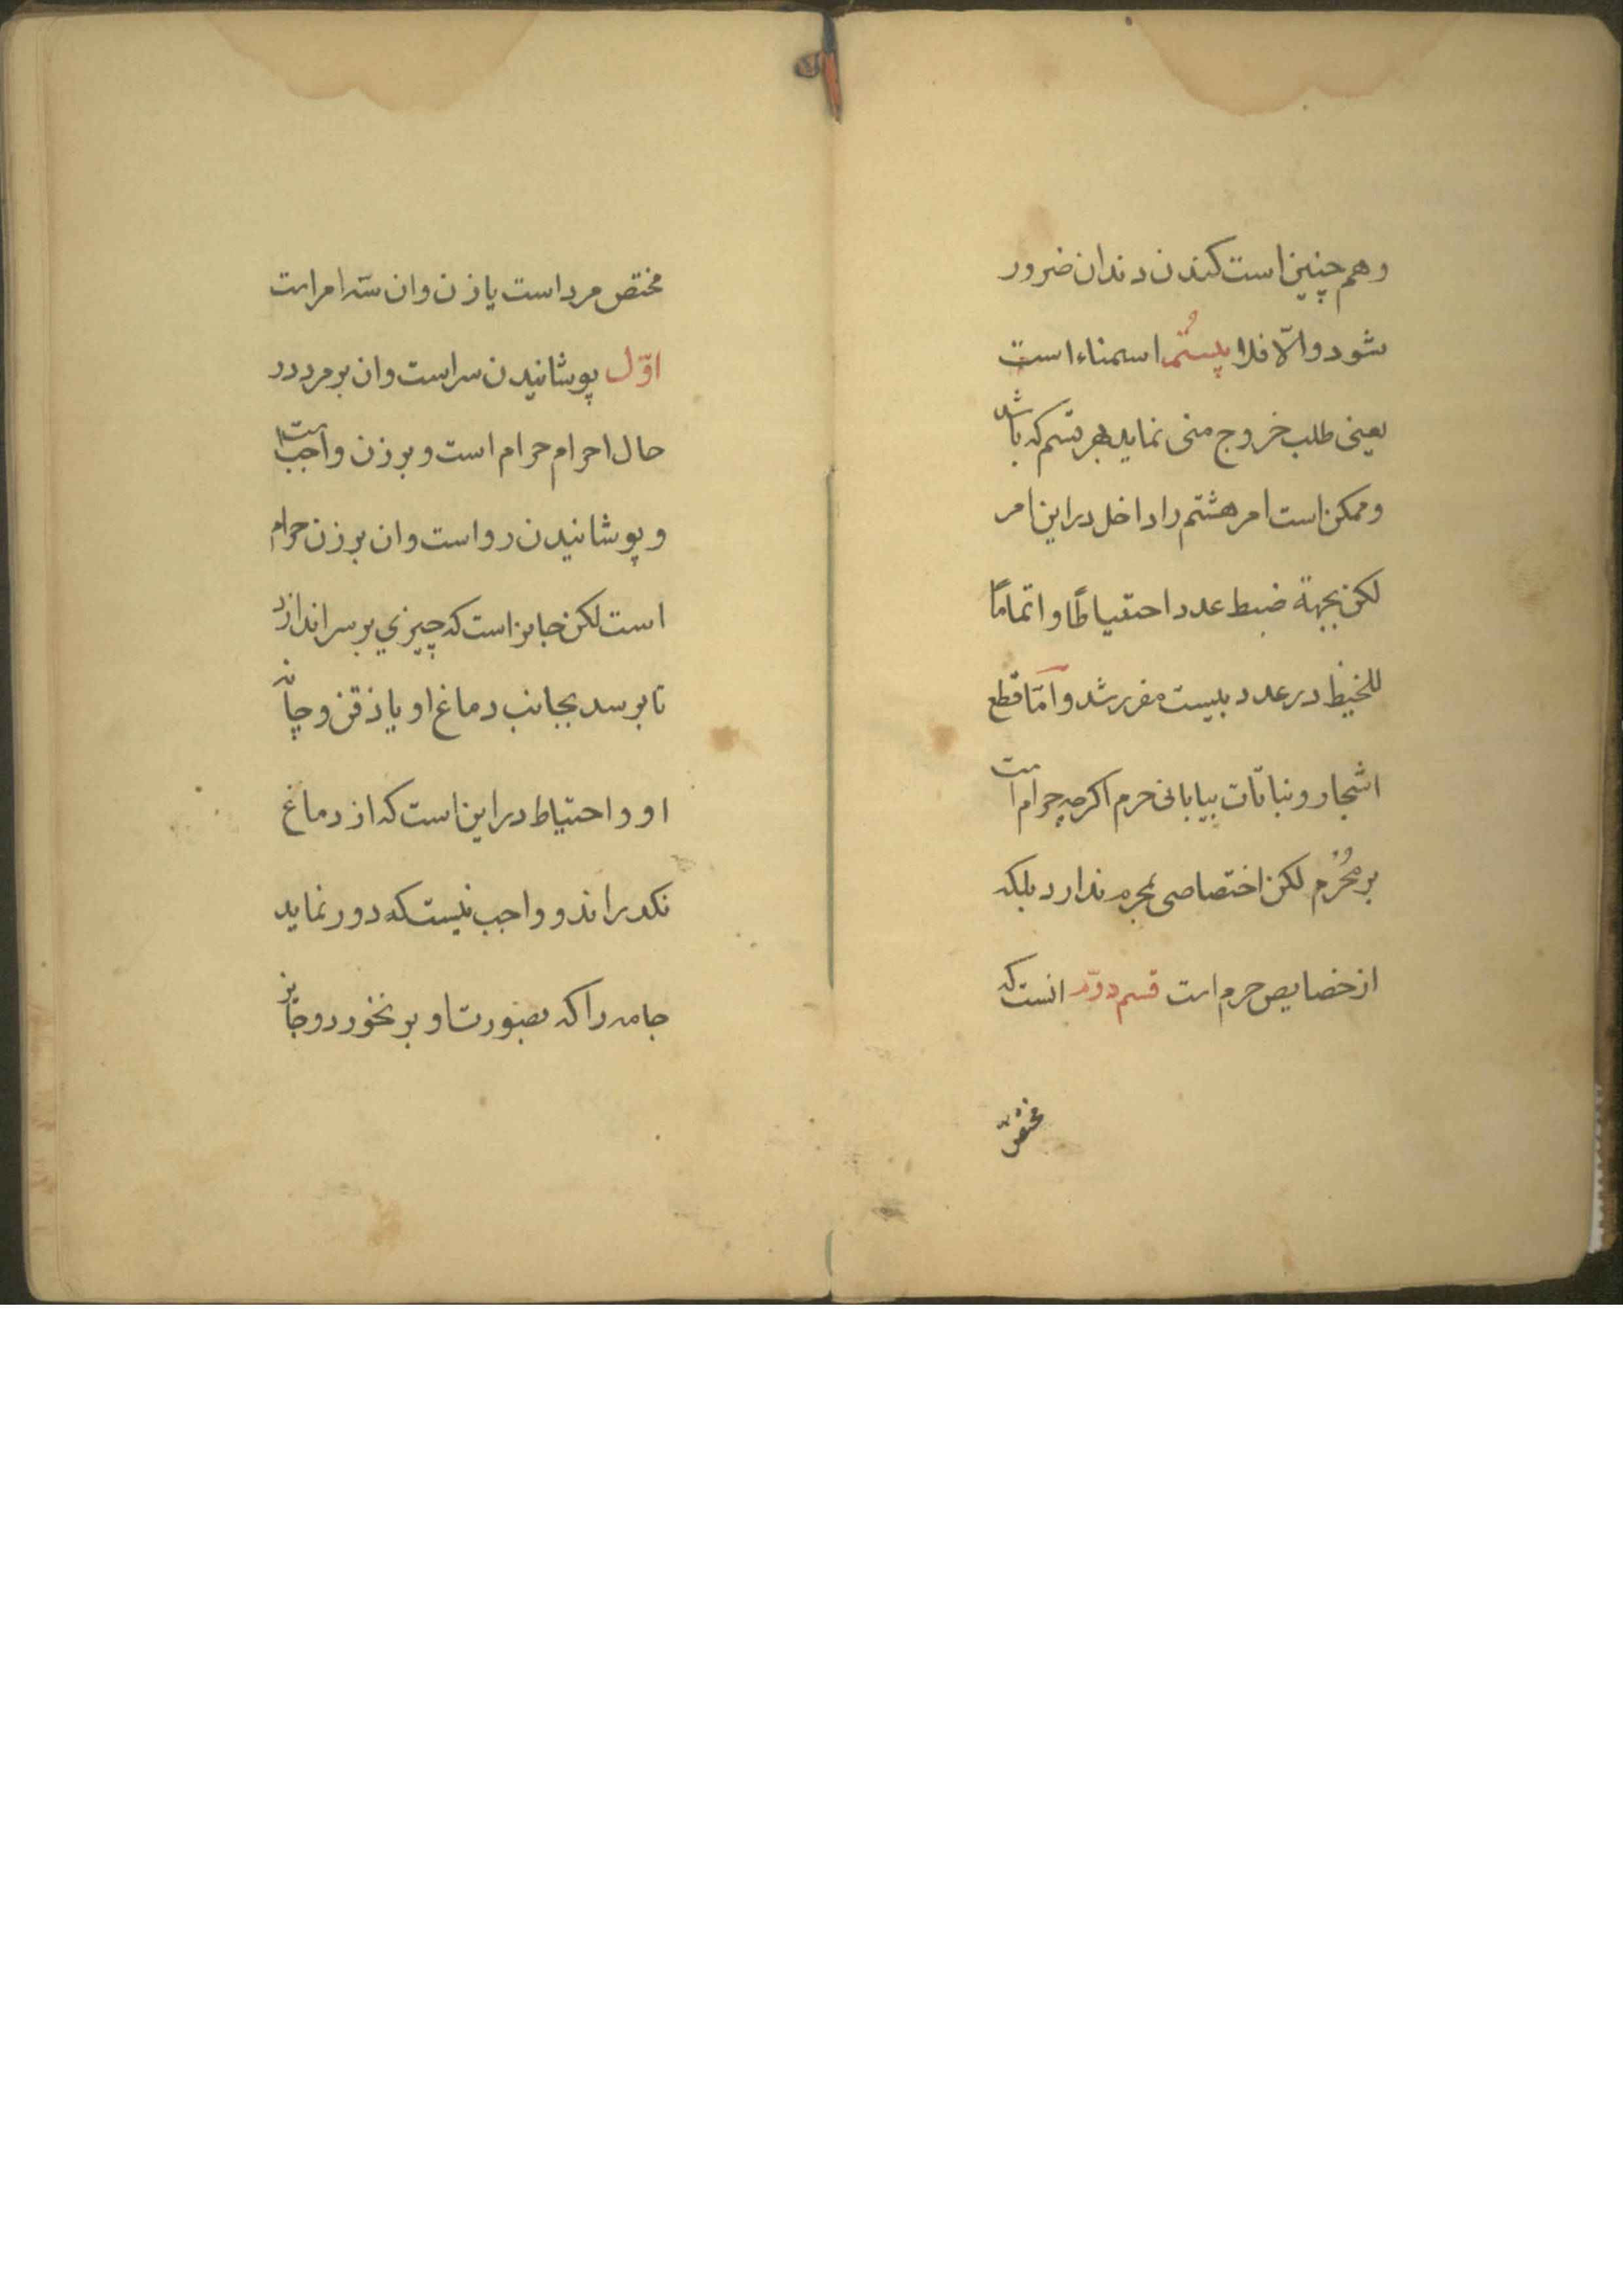 وهم چنین است کندن دندان ضرور
شود والّا فلا بیستُم استمناء است
یعنی طلب خروج منی نماید بهر قسم که باشد
وممکن است امر هشتم را داخل در این امر
لکن بجهة ضبط عدد احتیاطًا و اتمامًا
للخیط در عدد بیست مقرر شد و امّا قطع
اشجار و نباتات بیابانی حرم اکرچه حرام است
بر مُحْرُم لکن اختصاصی بمحرم ندارد بلکه
از خصایص حرم است قسم دوّم انست که
مختصّ
مختص مرد است یا زن وان سّه امر است
اوّل پوشانیدن سر است وان بر مرد در
حال احرام حرام است و بر زن واجب است
و پوشانیدن رو است وان بر زن حرام
است لکن جایز است که چیزی بر سر اندازد
تا برسد بجانب دماغ او یا ذقن و چانه
او و احتیاط در این است که از دماغ
نکذراند و واجب نیست که دور نماید
جامه را که بصورت او بر نخورد و جایز